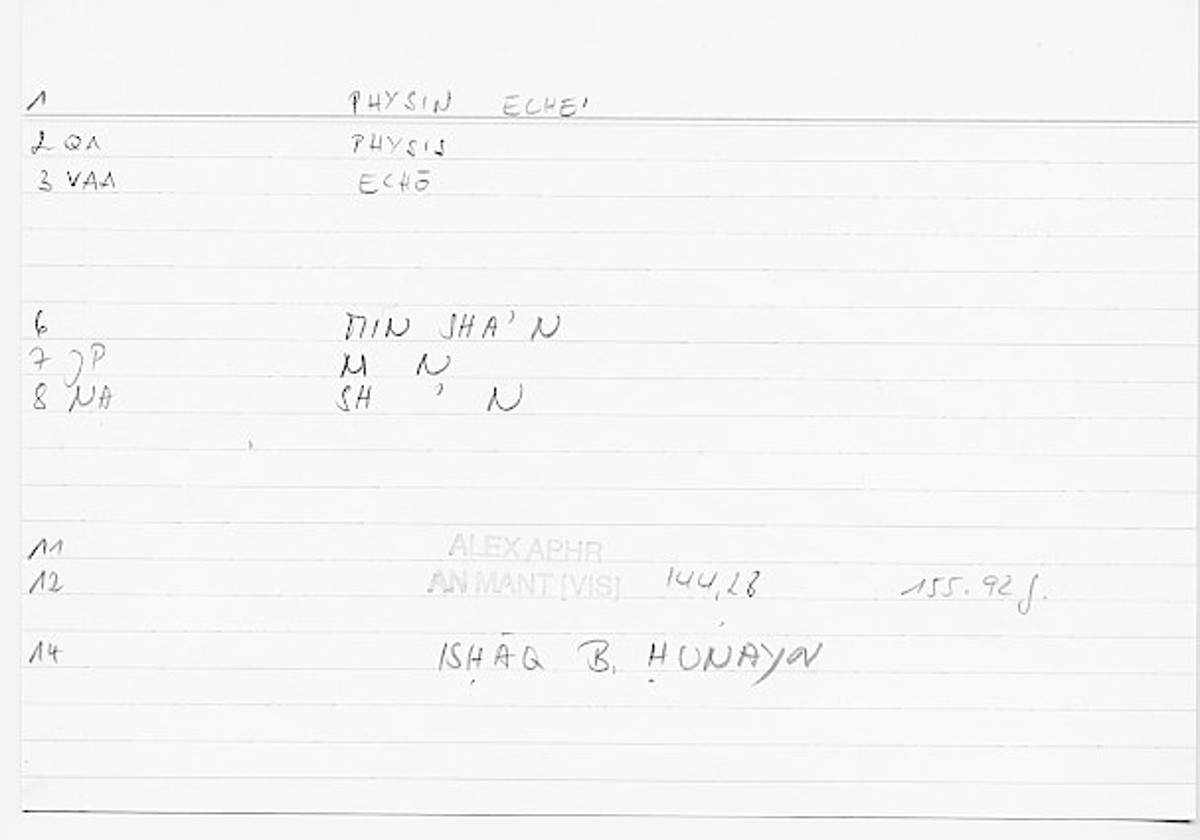 1 PHYSIN ECHEI
2 QA PHYSIS
3 VAA ECHŌ
6 MIN SHA'N
7 JP M N
8 NA SH ' N
11 ALEX APHR
12 AN MANT [VIS] 144,28 155.92f.
14 ISḤĀQ B. ḤUNAYN